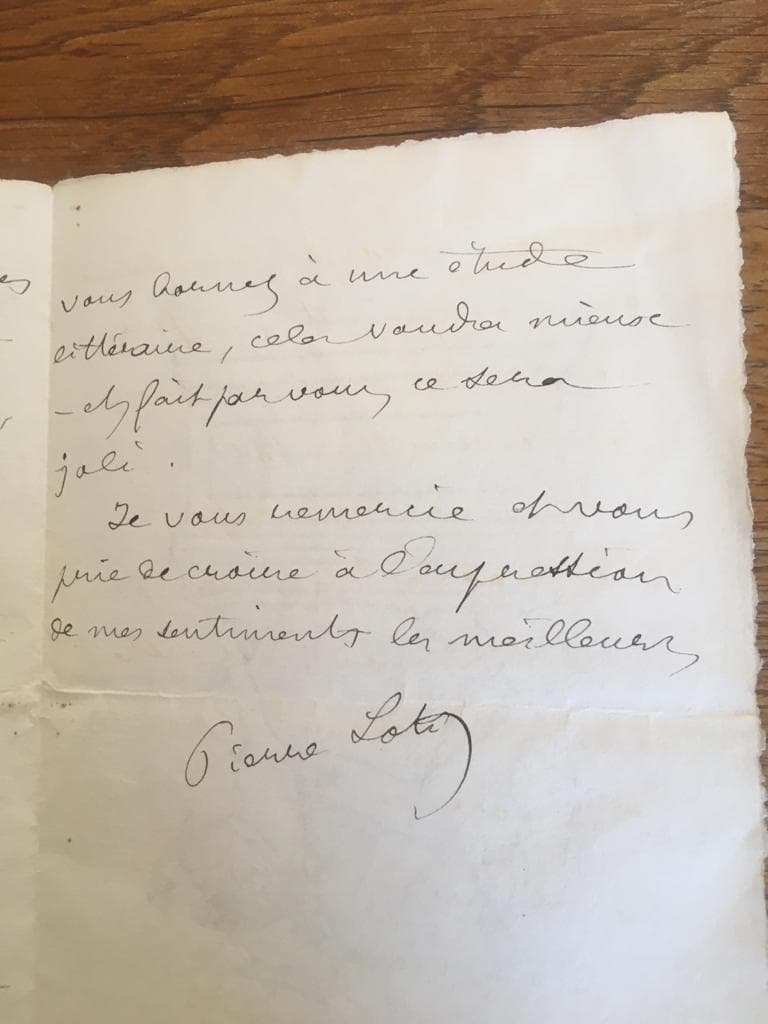 es
vous bornez à une étude
littéraire, cela vaudra mieux
– et, fait par vous, ce sera
joli.
Je vous remercie et vous
prie de croire à l'expression
de mes sentiments les meilleurs
Pierre Loti